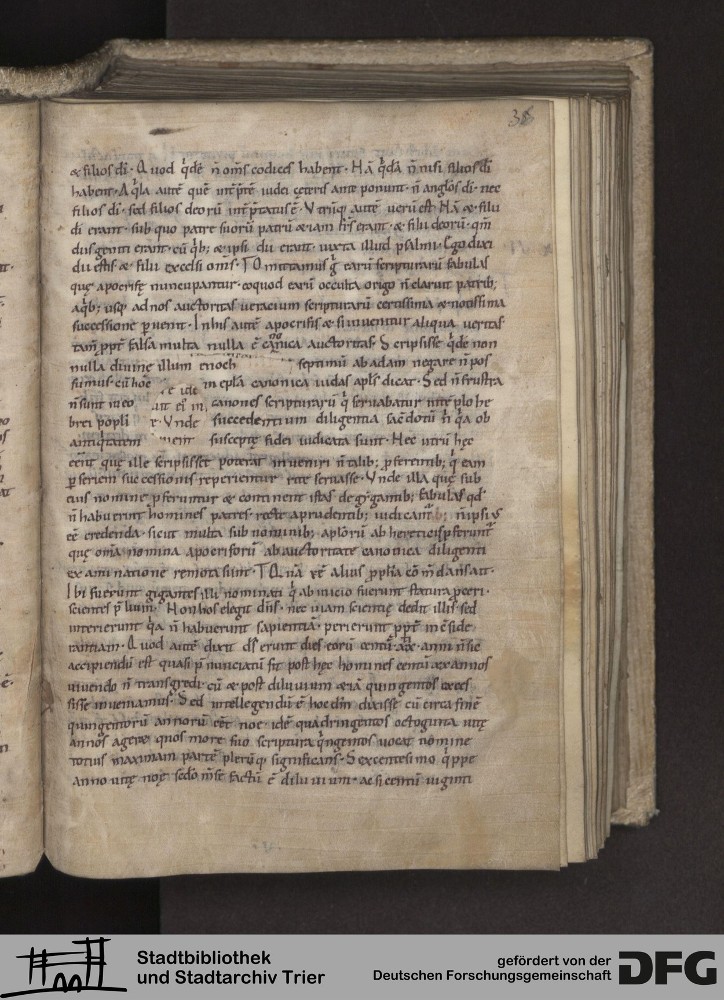 38
& filios di. Quod q̇dē n̄ om̄s codices habent. Nā q̇dā n̄ nisi filios di
habent. Aq̇la autē quē int̄p̄tē iudei ceteris ante ponunt. n̄ anglōs di. nec
filios di. sed filios deorū int̄p̄tatus ē. Vtrūq; autē uerū est. Nā & filii
di erant. sub quo patre suorū patrū & iam fr̄s erant. & filii deorū. qm̄
diis geniti erant. cū q̇b; & ipsi dii erant. iuxta illud psalmi. Ego dixi
dii estis & filii excelsi om̄s. TOmittamus ḡ earū scripturarū fabulas
quę apocrifę nuncupantur. eo quod earū occulta origo n̄ claruit patrib;
a q̇b; usq; ad nos auctoritas ueracium scripturarū certissima & notissima
successione p̱uenit. In his autē apocrifis & si inuenitur aliqua ueritas
tam̄ pp̄t falsa multa nulla ē canonica auctoritas. Scripsisse q̇dē non
nulla diuine illum enoch septimū ab adam negare n̄ pos
sumus. cū hoc in ep̄la canonica iudas apls̄ dicat. Sed n̄ frustra
n̄ sunt in eo canones scripturarū q̇ seruabatur in tēplo he
brei popli Vnde succedentium diligentia sacdotū n̄ q̇a ob
antiq̇tatem susceptę fidei iudicata sunt. Nec utrū hęc
eēnt quę ille scripsisset poterat inueniri n̄ talib; p̱ferentib; q̇ eam
p̱ seriem successionis reperientur rite seruasse. Vnde illa quę sub
eius nomine p̱feruntur & continent istas de gigantib; fabulas qd̄
n̄ habuerint homines patres. recte a prudentib; iudicantur n̄ ipsius
eē credenda. sicut multa sub nominib; aplōrū ab hereticis p̱ferunt̄
quę om̄a nomina apocriforū ab auctoritate canonica diligenti
examinatione remota sunt.
Ibi fuerunt gigantes illi nominati q̇ ab inicio fuerunt statura p̱ceri.
scientes p̄lium. Non hos elegit dn̄s. nec uiam scientię dedit illis. sed
interierunt q̇a n̄ habuerunt sapientiā. perierunt pp̄t inc̄side
rantiam. Quod autē dixit ds̄ erunt dies eorū centū xx. anni n̄ sic
accipiendū est quasi p̄nunciatū sit post hęc homines centū xx annos
uiuendo n̄ transgredi. cū & post diluuium &iā quingentos exces
sisse inueniamus. Sed intellegendū ē hoc dm̄ dixisse cū circa finē
quingentorū annorū eēt noe. id ē quadringentos octoginta uitę
annos ageret quos more suo scriptura q̇ngentos uocat nomine
totius maximam partē plerūq; significans. Sexcentesimo q̇ppe
anno uitę noę scd̄o m̄se factū ē diluuium. ac si centū uiginti
Stadtbibliothek
und Stadtarchiv Trier
gefördert von der
Deutschen Forschungsgemeinschaft
DFG